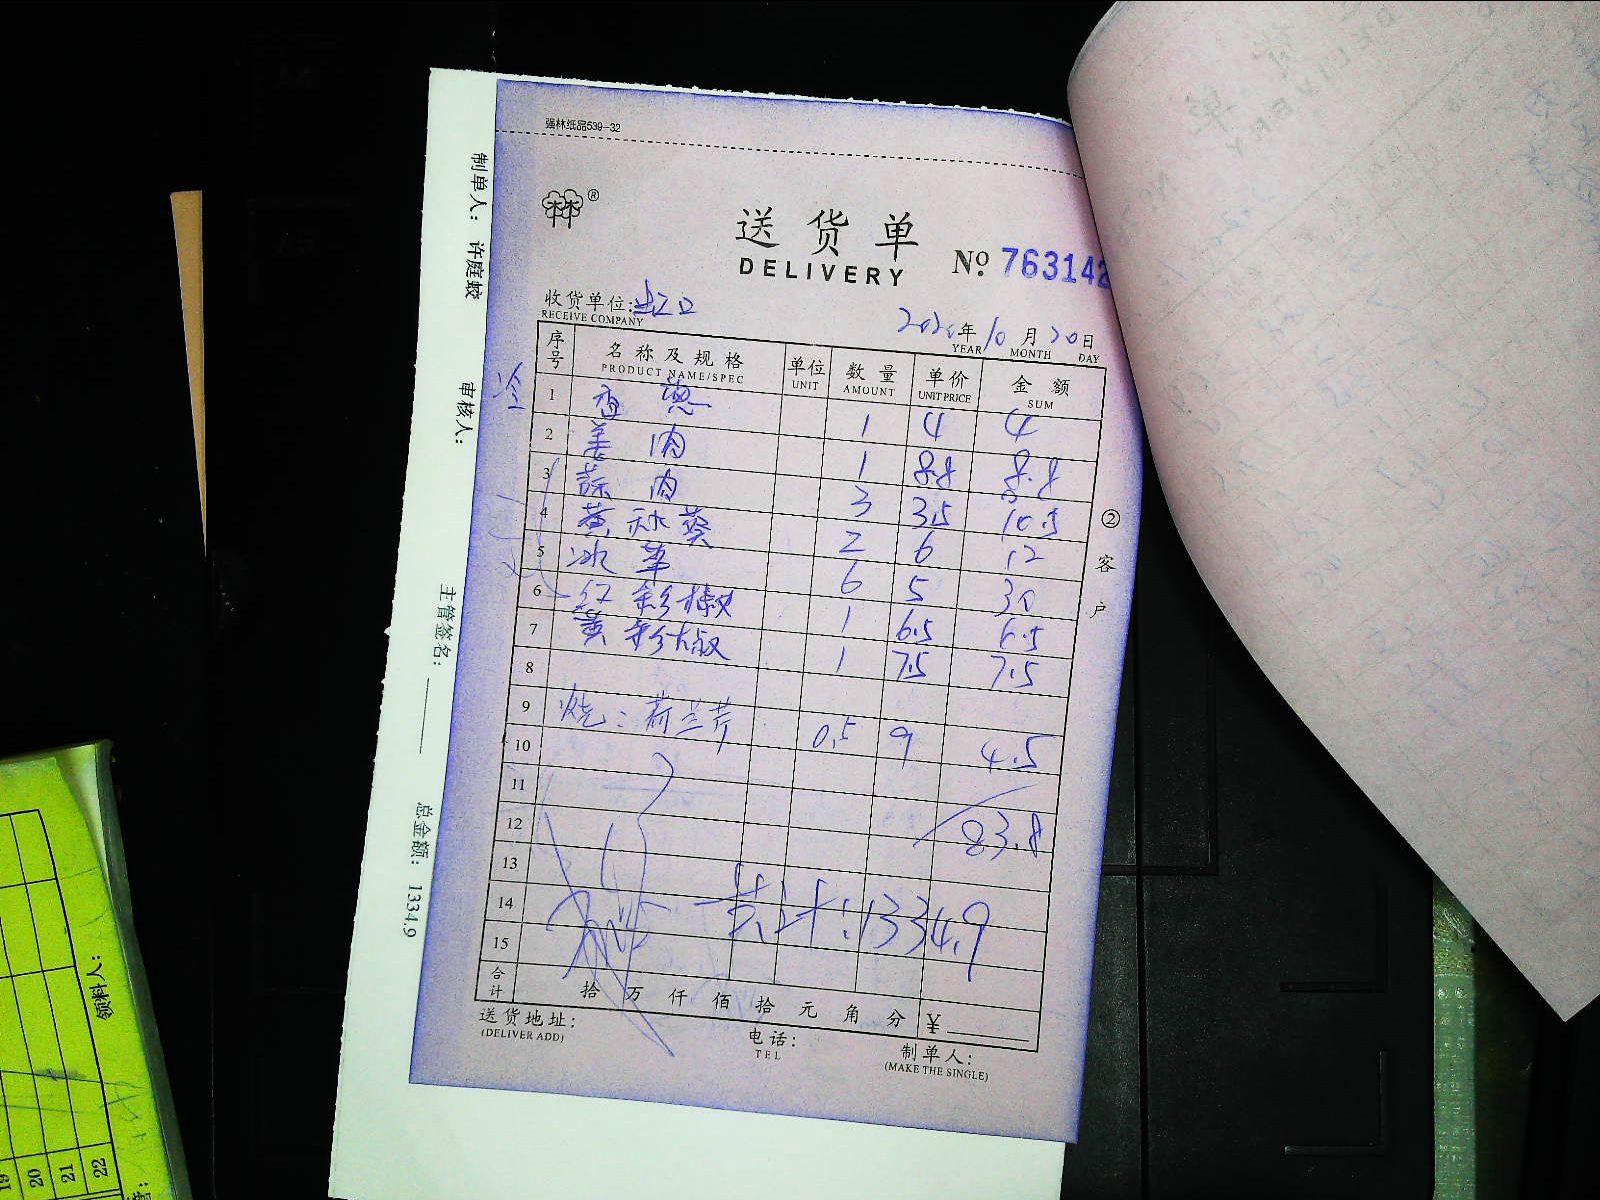 强林纸品539-32
林®
送货单
DELIVERY
No. 763142
收货单位:虹口
RECEIVE COMPANY
年10月20日
YEAR MONTH DAY
序号 名称及规格 单位 数量 单价 金额
PRODUCT NAME/SPEC UNIT AMOUNT UNIT PRICE SUM
冷
1 香葱 1 4 4
2 姜肉 1 8.8 8.8
3 蒜肉 3 3.5 10.5
4 黄秋葵 2 6 12
5 冰草 6 5 30
6 红彩椒 1 6.5 6.5
7 黄彩椒 1 7.5 7.5
8
9 烧:荷兰芹 0.5 9 4.5
10
11
12 83.8
13
14 共计:1334.9
15
合计 拾万仟佰拾元角分 ¥
送货地址:
(DELIVER ADD)
电话:
TEL
制单人:
(MAKE THE SINGLE)
②客户
制单人: 许庭蛟
审核人:
主管签名:
总金额: 1334.9
领料人:
20
21
22